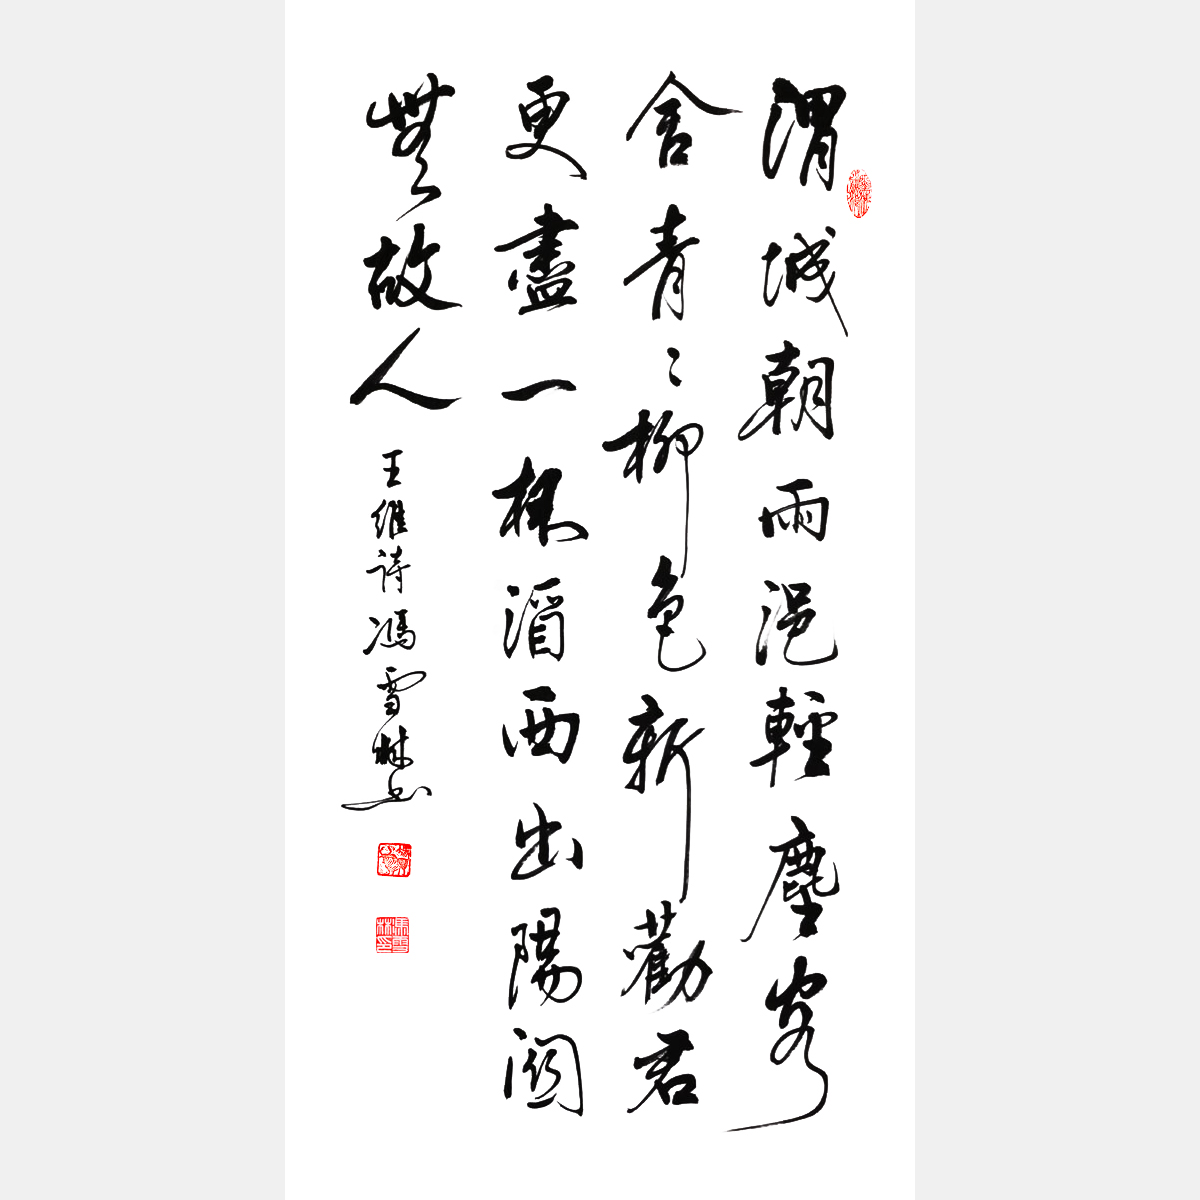 渭城朝雨浥輕塵客
舍青〻柳色新勸君
更盡一杯酒西出陽關
無故人
王維詩馮雪林书